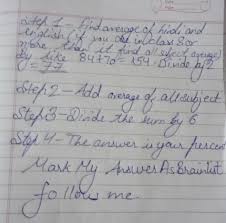 Step 1 - Find average of hindi and
english (if you are in class 8 or
more than it find all subject average)
by like 84+70=154. Divide by 2
=77
Step 2 - Add average of all subject
Step 3 - Divide the sum by 6
Step 4 - The answer is your percent
Mark My Answer As Brainlist
follow me